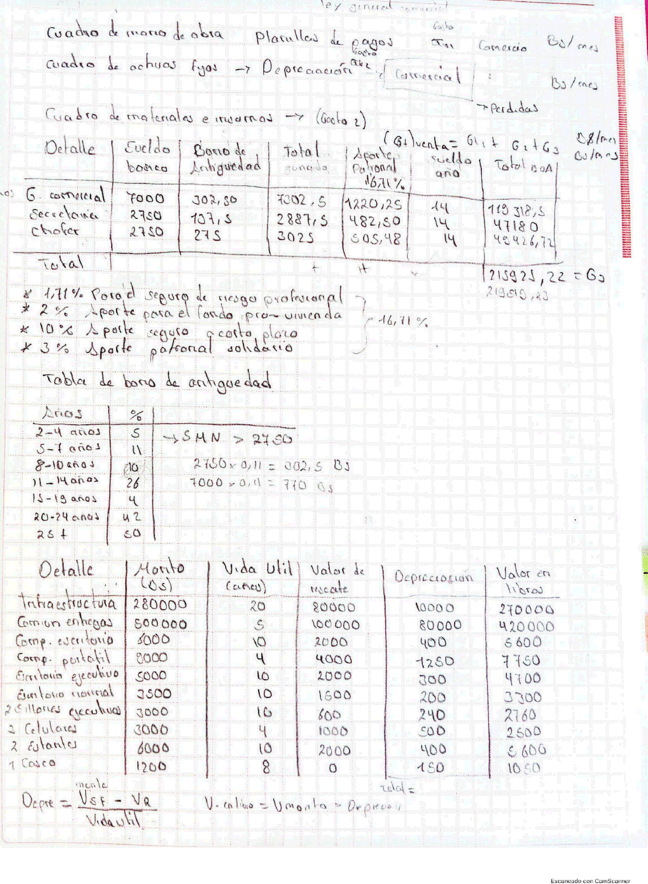 ley general comercial
Cuadro de mano de obra planillas de pagos Comercio Bs/mes
Cuadro de activos fijos → Depreciación Comercial Bs/mes
→ Perdidas
Cuadro de materiales e insumos → (Gasto 2)
(G3) venta = G1 + G2 + G3
Detalle Sueldo basico Bono de Antiguedad Total ganado Aporte Patronal 16,71% sueldo año Total
G. comercial 7000 302,50 7302,5 1220,25 14 119318,5
Secretaria 2750 137,5 2887,5 482,50 14 47180
Chofer 2750 275 3025 505,48 14 49426,72
Total 215925,22 = G3
* 1,71% Para el seguro de riesgo profesional
* 2% Aporte para el fondo pro-vivienda
* 10% Aporte seguro a corto plazo
* 3% Aporte patronal solidario
16,71%
Tabla de bono de antiguedad
Años %
2-4 años 5 → SMN > 2750
5-7 años 11
8-10 años 10 2750 x 0,11 = 302,5 Bs
11-14 años 26 7000 x 0,11 = 770 Bs
15-19 años 4
20-24 años 42
25 + 50
Detalle Monto (Bs) Vida Util (años) Valor de rescate Depreciación Valor en libros
Infraestructura 280000 20 80000 10000 270000
Camion entregas 500000 5 100000 80000 420000
Comp. escritorio 6000 10 2000 400 5600
Comp. portatil 9000 4 4000 1250 7750
Escritorio ejecutivo 5000 10 2000 300 4700
Escritorio normal 3500 10 1500 200 3300
2 Sillones ejecutivos 3000 10 600 240 2760
2 Celulares 3000 4 1000 500 2500
2 Estantes 6000 10 2000 400 5600
1 Casco 1200 8 0 150 1050
total =
monto
Depre = VSF - VR
Vida Util
V. en libro = V monto - Depreciación
Escaneado con CamScanner